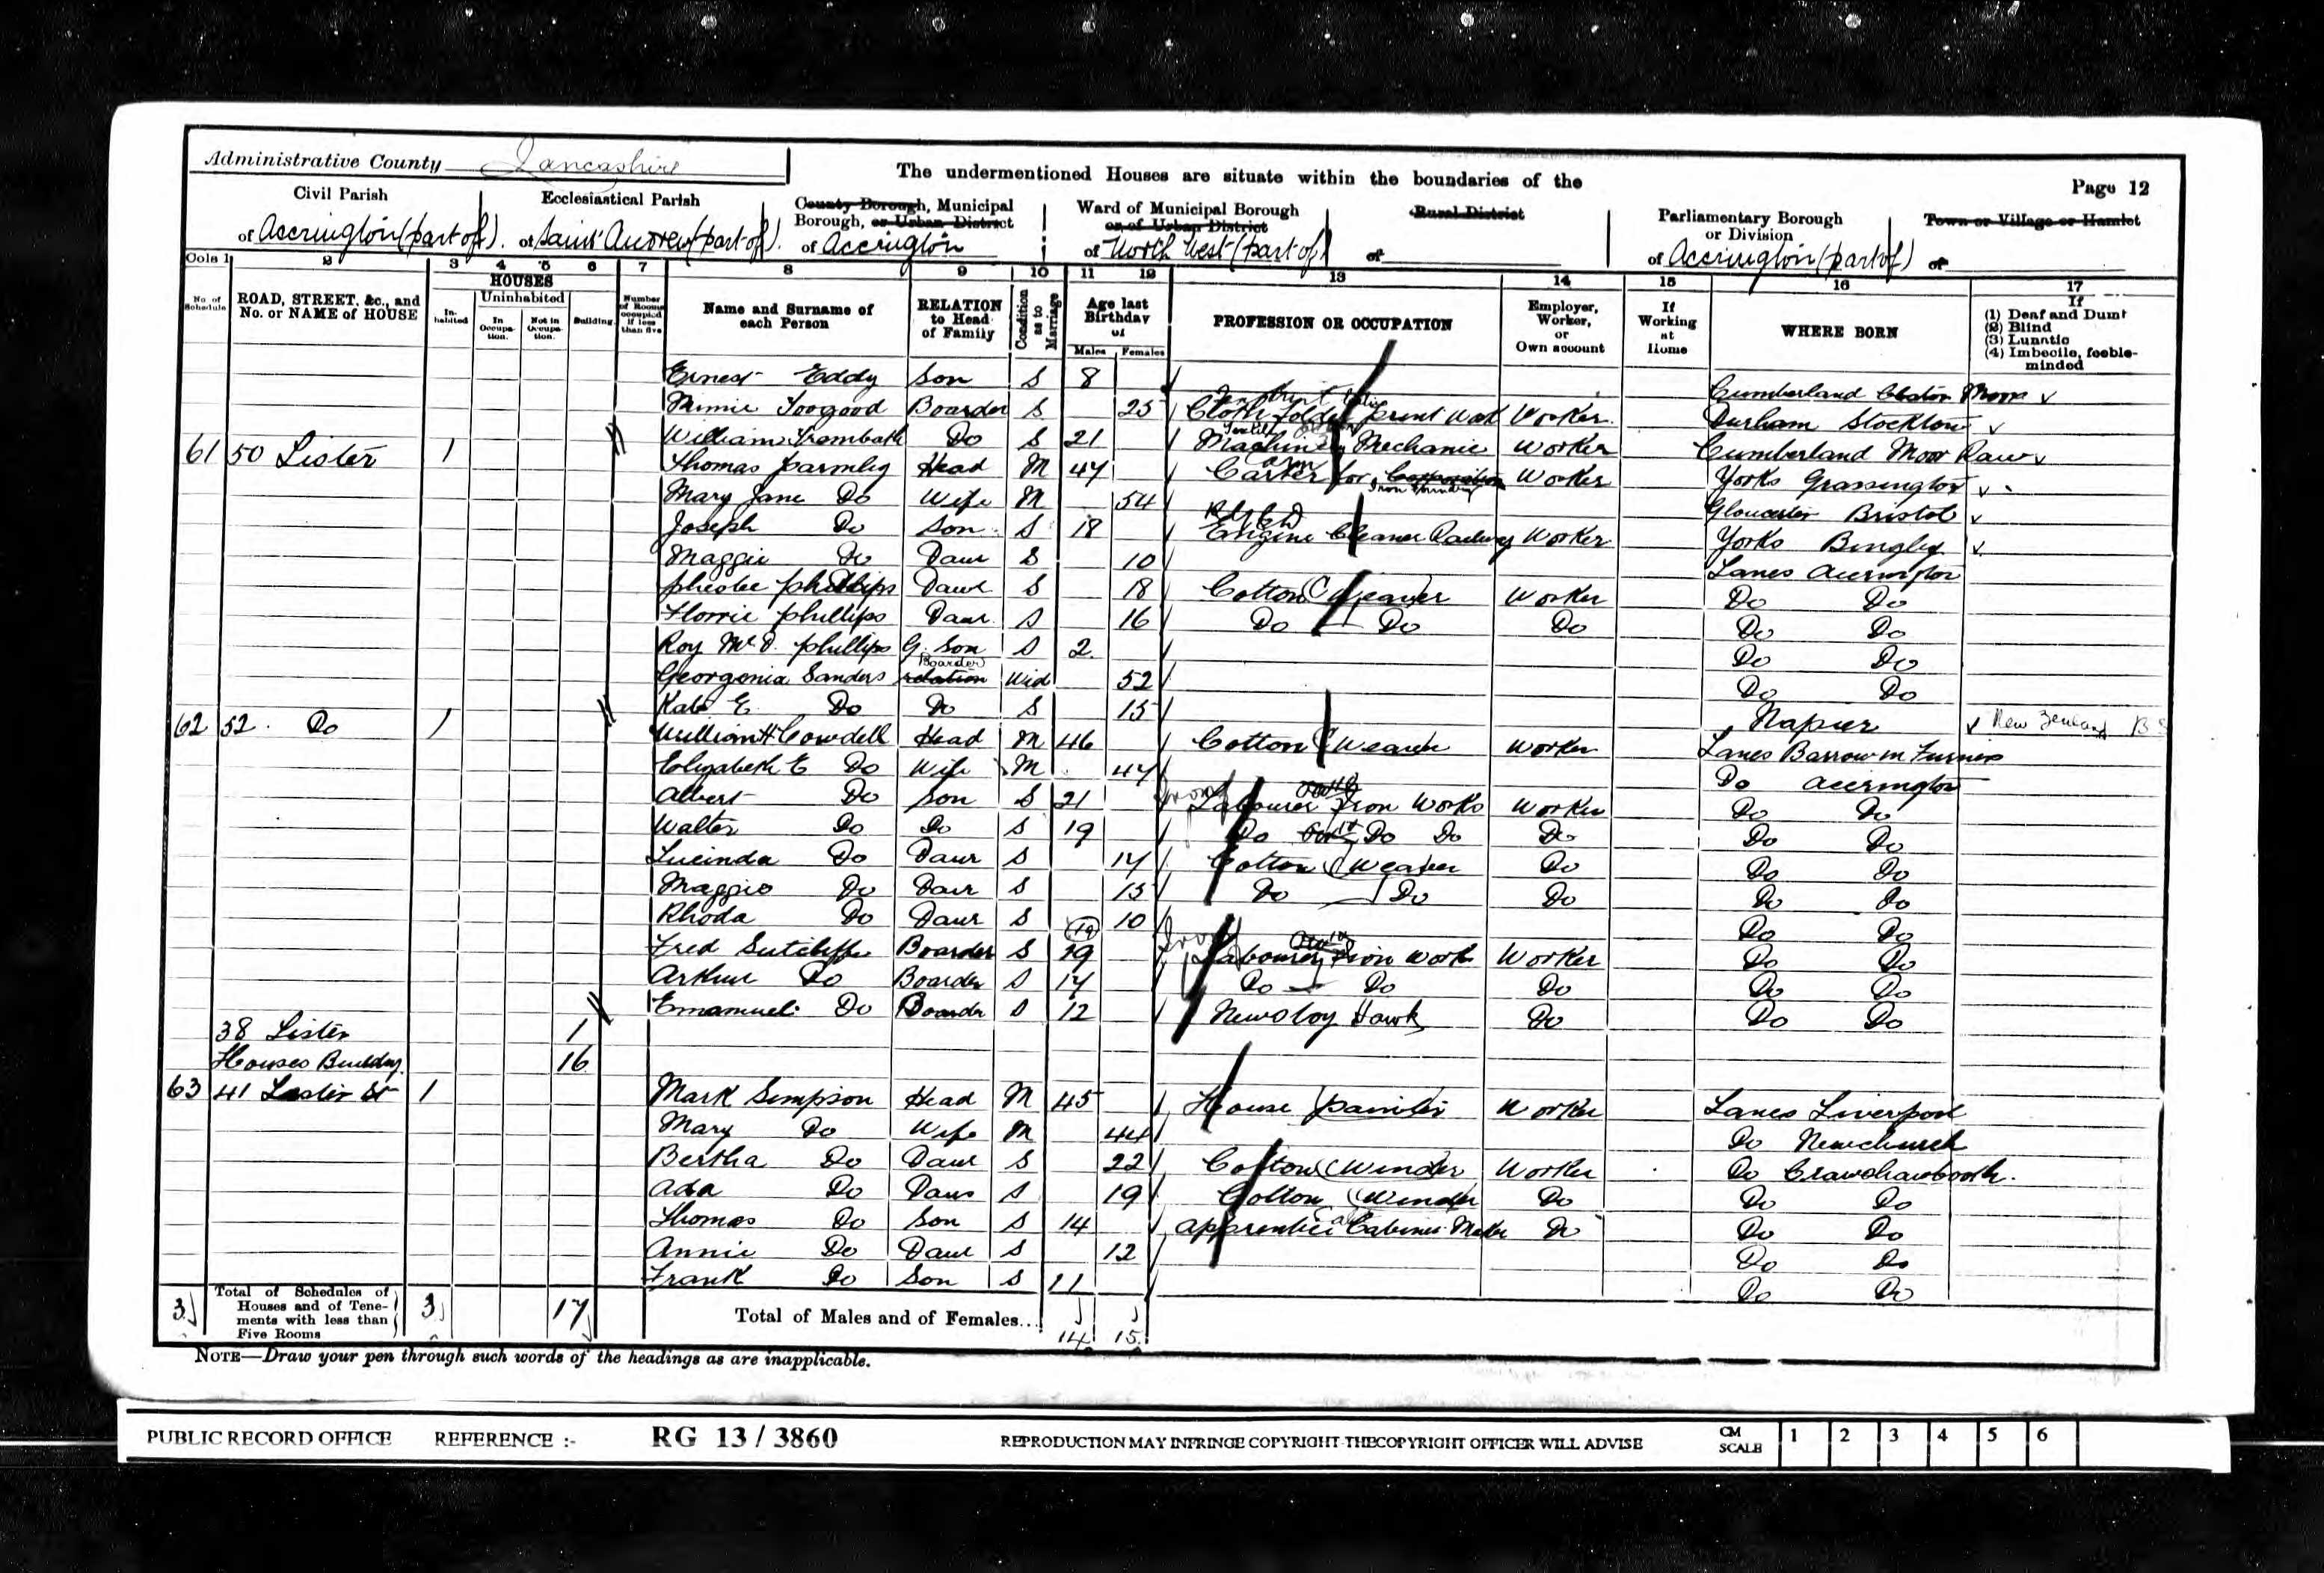 Administrative County Lancashire
The undermentioned Houses are situate within the boundaries of the
Page 12
Civil Parish
of Accrington (part of).
Ecclesiastical Parish
of Saint Andrew (part of).
County Borough, Municipal
Borough, or Urban District
of Accrington
Ward of Municipal Borough
or of Urban District
of North West (part of)
Rural District
of
Parliamentary Borough
or Division
of Accrington (part of)
Town or Village or Hamlet
of
Cols 1 2 3 4 5 6 7 8 9 10 11 12 13 14 15 16 17
No. of Schedule
ROAD, STREET, &c., and No. or NAME of HOUSE
HOUSES
Inhabited
Uninhabited
In Occupation.
Not in Occupation.
Building.
Number of Rooms occupied if less than five
Name and Surname of each Person
RELATION to Head of Family
Condition as to Marriage
Age last Birthday of
Males Females
PROFESSION OR OCCUPATION
Employer, Worker, or Own account
If Working at Home
WHERE BORN
If
(1) Deaf and Dumb
(2) Blind
(3) Lunatic
(4) Imbecile, feeble-minded
Ernest Eddy Son S 8 Cumberland Cleator Moor
Minnie Toogood Boarder S 25 Cloth Folder print work Worker Durham Stockton
William Trembath Do S 21 Machinery Mechanic Worker Cumberland Moor Row
61 50 Lister 1 Thomas Parmley Head M 47 Carter for Corporation Iron foundry Worker Yorks Grassington
Mary Jane Do Wife M 54 Gloucester Bristol
Joseph Do Son S 18 Engine Cleaner Railway Worker Yorks Bingley
Maggie Do Daur S 10 Lancs Accrington
Pheobe Phillips Daur S 18 Cotton Weaver Worker Do Do
Florrie Phillips Daur S 16 Do Do Do Do Do
Roy McD. Phillips G. Son S 2 Do Do
Georgenia Sanders relation Boarder Wid 52 Do Do
Kate E. Do Do S 15 Napier New Zealand B S
62 52 Do 1 William H Cowdell Head M 46 Cotton Weaver Worker Lancs Barrow in Furness
Elizabeth E Do Wife M 47 Do Accrington
Albert Do Son S 21 Labourer Iron Works Worker Do Do
Walter Do Do S 19 Do Do Do Do Do Do
Lucinda Do Daur S 17 Cotton Weaver Do Do Do
Maggie Do Daur S 15 Do Do Do Do Do
Rhoda Do Daur S 10 Do Do
Fred Sutcliffe Boarder S 19 Labourer Iron Work Worker Do Do
Arthur Do Boarder S 17 Do Do Do Do Do
Emamuel Do Boarder S 12 Newsboy Hawk Do Do Do
38 Lister 1
Houses Building 16
63 41 Lister St 1 Mark Simpson Head M 45 House Painter Worker Lancs Liverpool
Mary Do Wife M 44 Do Newchurch
Bertha Do Daur S 22 Cotton Winder Worker Do Crawshawbooth.
Ada Do Daur S 19 Cotton Winder Do Do Do
Thomas Do Son S 14 Apprentice Cabinet Maker Do Do Do
Annie Do Daur S 12 Do Do
Frank Do Son S 11 Do Do
3 Total of Schedules of Houses and of Tenements with less than Five Rooms 3 17 Total of Males and of Females... 14 15
NOTE—Draw your pen through such words of the headings as are inapplicable.
PUBLIC RECORD OFFICE REFERENCE :- RG 13 / 3860 REPRODUCTION MAY INFRINGE COPYRIGHT THECOPYRIGHT OFFICER WILL ADVISE CM SCALE 1 2 3 4 5 6